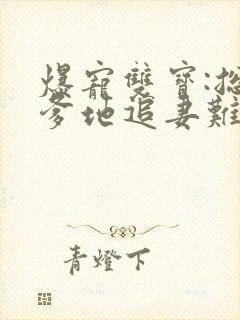 爆寵雙寶:總
爹地追妻難
青燈下